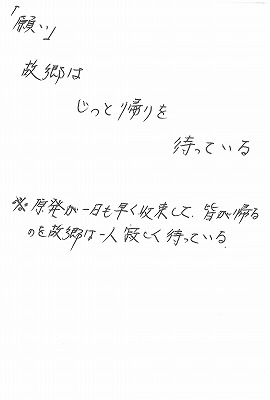 「願い」
故郷は
じっと帰りを
待っている
※原発が一日も早く収束して、皆が帰る
のを故郷は一人寂しく待っている